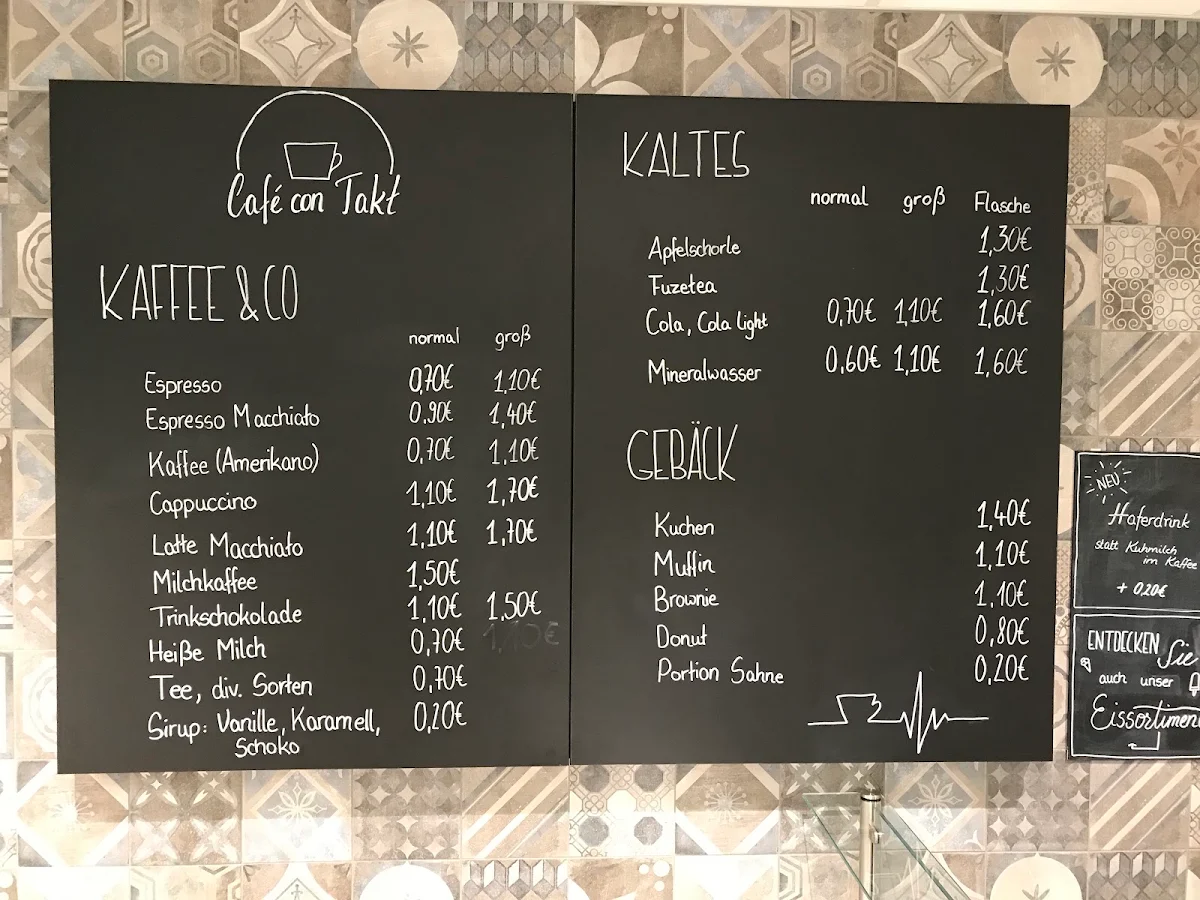 Café con Takt
KAFFEE & CO
normal groß
Espresso 0,70€ 1,10€
Espresso Macchiato 0,90€ 1,40€
Kaffee (Amerikano) 0,70€ 1,10€
Cappuccino 1,10€ 1,70€
Latte Macchiato 1,10€ 1,70€
Milchkaffee 1,50€
Trinkschokolade 1,10€ 1,50€
Heiße Milch 0,70€ 1,10€
Tee, div. Sorten 0,70€
Sirup: Vanille, Karamell, 0,20€
Schoko
KALTES
normal groß Flasche
Apfelschorle 1,30€
Fuzetea 1,30€
Cola, Cola light 0,70€ 1,10€ 1,60€
Mineralwasser 0,60€ 1,10€ 1,60€
GEBÄCK
Kuchen 1,40€
Muffin 1,10€
Brownie 1,10€
Donut 0,80€
Portion Sahne 0,20€
NEU
Haferdrink
statt Kuhmilch
im Kaffee
+ 0,20€
ENTDECKEN Sie
auch unser
Eissortiment